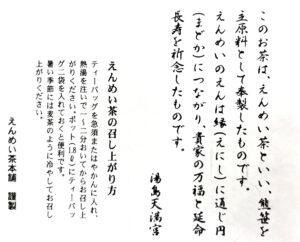 このお茶は、えんめい茶といい、熊笹を
主原料として奉製したものです。
えんめいのえんは縁(えにし)に通じ円
(まどか)につながり、貴家の万福と延命
長寿を祈念したものです。
湯島天満宮
えんめい茶の召し上がり方
ティーバッグを急須またはやかんに入れ、
熱湯を注いで一~二分おいてからお召し上
がりください。ポット(1.8ℓ)にティーバッ
グ二袋を入れておくと便利です。
暑い季節には麦茶のように冷やしてお召し
上がりください。
えんめい茶本舗 謹製